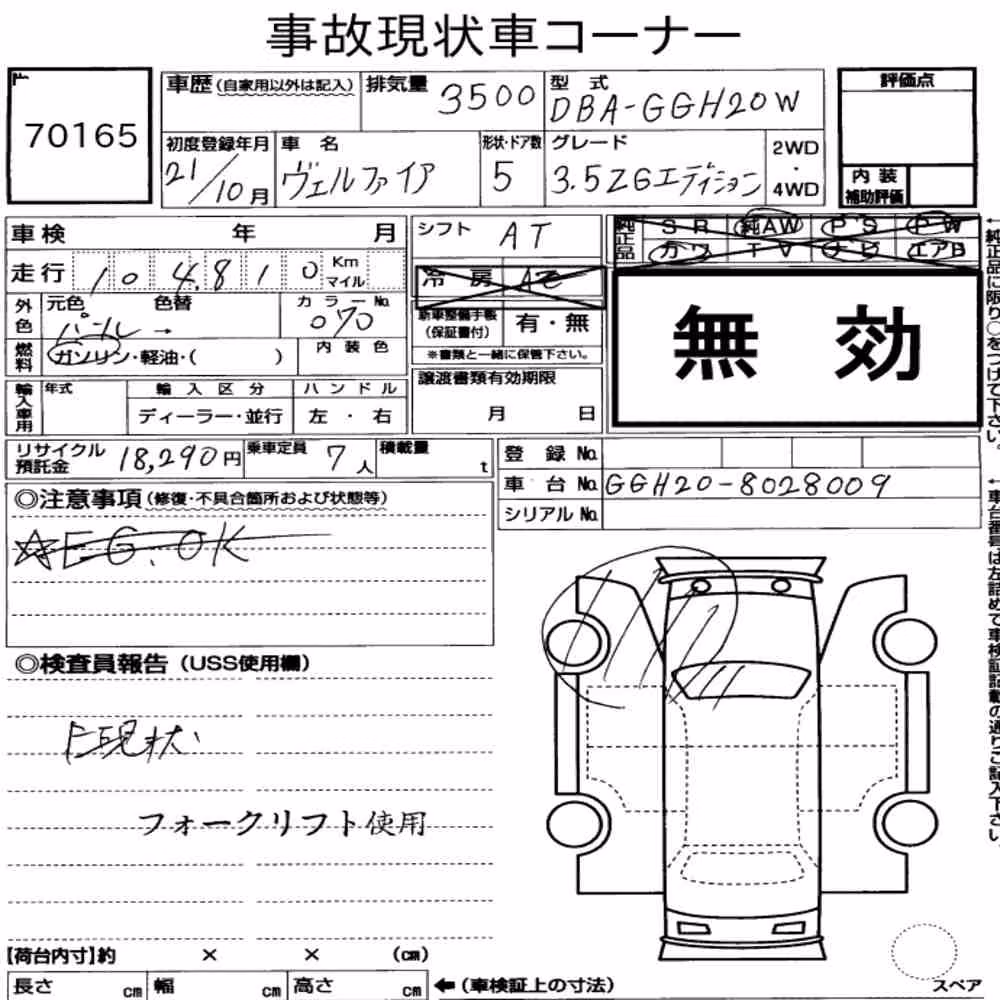 事故現状車コーナー
70165
車歴(自家用以外は記入) 排気量 3500 型式 DBA-GGH20W
評価点
初度登録年月 21/10月 車名 ヴェルファイア 形状・ドア数 5 グレード 3.5ZGエディション 2WD・4WD
内装補助評価
車検 年 月
シフト AT
純正品 SR 純AW PS PW
カワ TV ナビ エアB
走行 104,810 Km マイル
冷房 AC
外色 元色 パール → 色替 カラーNo. 070
新車整備手帳(保証書付) 有・無
※書類と一緒に保管下さい。
無効
燃料 ガソリン・軽油・( ) 内装色
輸入車用 年式 輸入区分 ハンドル
ディーラー・並行 左・右
譲渡書類有効期限
月 日
リサイクル預託金 18,290円 乗車定員 7人 積載量 t
登録No.
車台No. GGH20-8028009
シリアルNo.
◎注意事項(修復・不具合箇所および状態等)
☆EG.OK
◎検査員報告(USS使用欄)
現状
フォークリフト使用
【荷台内寸】約 × × (cm)
長さ cm 幅 cm 高さ cm ←(車検証上の寸法)
スペア
←純正品に限り○をつけて下さい。
←車台番号は左詰めで車検証記載の通りご記入下さい。